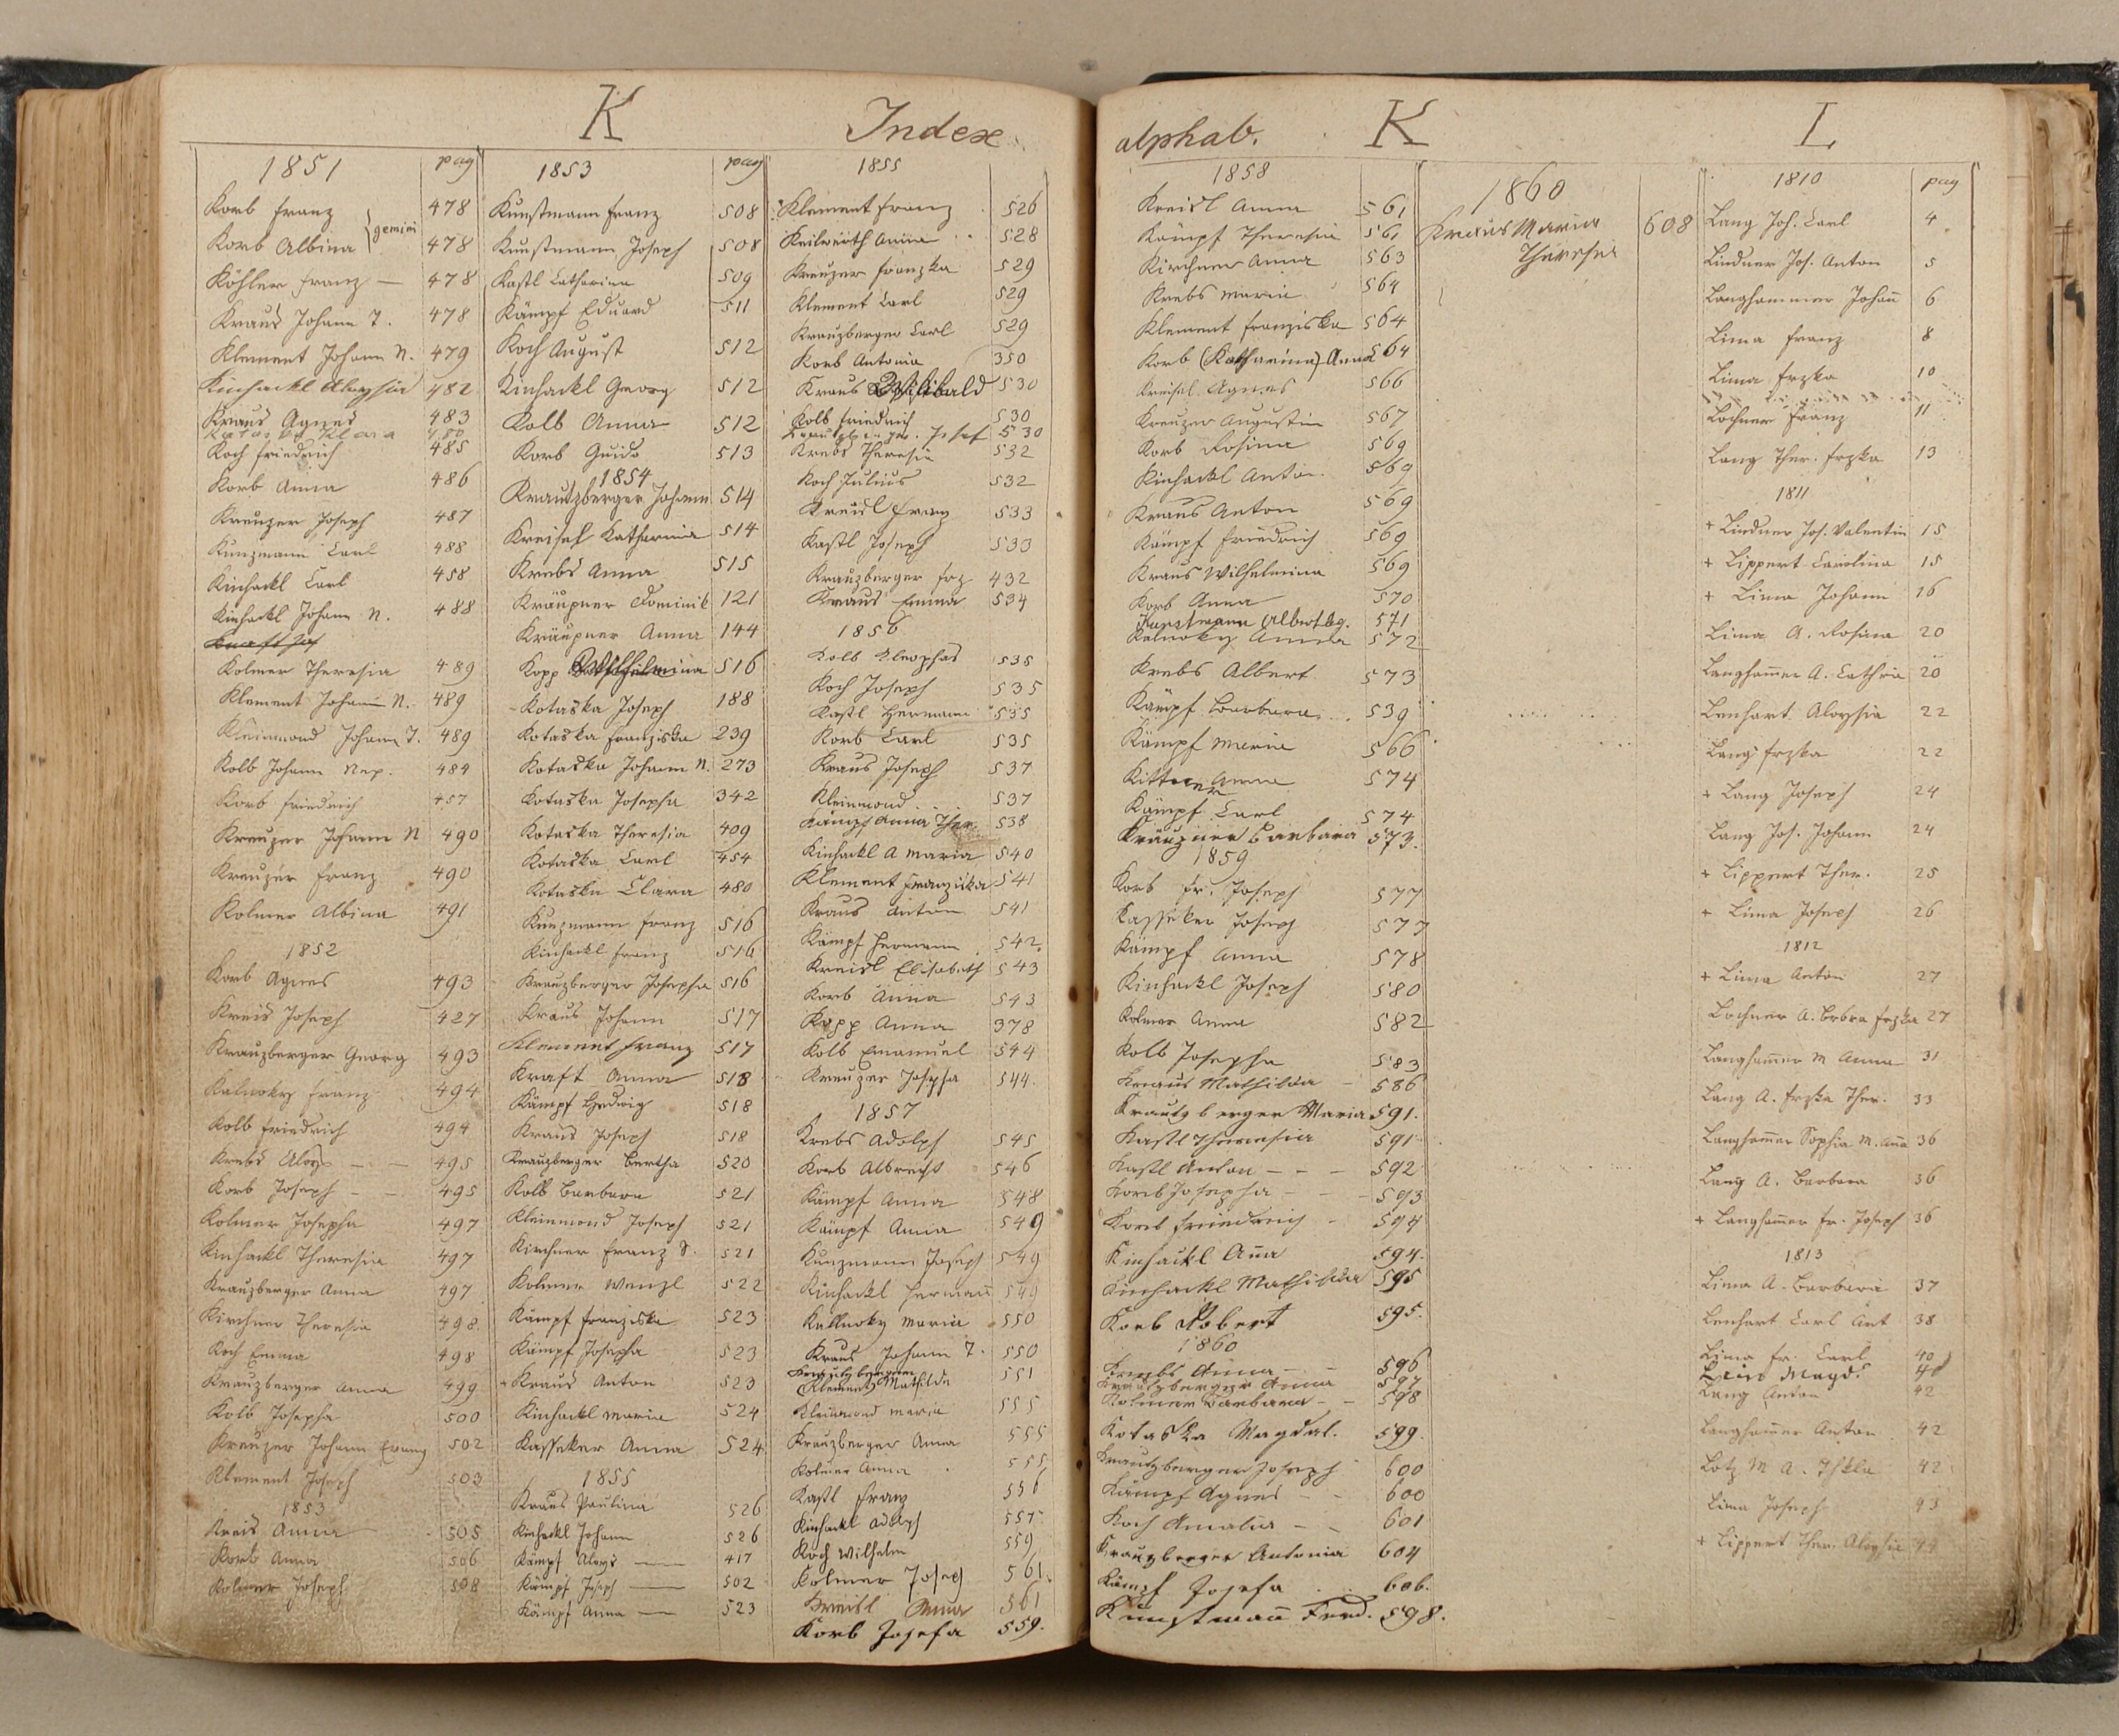 K
Index
1851 pag
Korb Franz 478
Korb Albina } gemini 478
Köhler Franz — 478
Kraus Johann T. 478
Klement Johann N. 479
Kinhackl Aloysia 482
Kraus Agnes 483
Kotaska Klara 480
Koch Friedrich 485
Korb Anna 486
Kreuzer Joseph 487
Kunzmann Carl 488
Kinhackl Carl 458
Kinhackl Johann N. 488
Kolmer Theresia 489
Klement Johann N. 489
Kleinmond Johann T. 489
Kolb Johann Nep. 484
Korb Friedrich 457
Kreuzer Johann N 490
Kreuzer Franz 490
Kolmer Albina 491
1852
Korb Agnes 493
Kreis Joseph 427
Krauzberger Georg 493
Kalnoky Franz 494
Kolb Friedrich 494
Krebs Aloys — — 495
Korb Joseph — — 495
Kolmer Josepha 497
Kinhackl Theresia 497
Krauzberger Anna 497
Kirchner Theresia 498
Koch Emma 498
Krauzberger Anna 499
Kolb Josepha 500
Kreuzer Johann Evang 502
Klement Joseph 503
1853
Kreis Anna 505
Korb Anna 506
Kolmer Joseph 508
1853 pag
Kunstmann Franz 508
Kunstmann Joseph 508
Kastl Catharina 509
Kämpf Eduard 511
Koch August 512
Kinhackl Georg 512
Kolb Anna 512
Korb Guido 513
1854
Krautzberger Johann 514
Kreisel Katharina 514
Krebs Anna 515
Kräupner Dominik 121
Kräupner Anna 144
Kopp Wilhelmina 516
Kotaska Joseph 188
Kotaska Franziska 239
Kotaska Johann N. 273
Kotaska Josepha 342
Kotaska Theresia 409
Kotaska Carl 454
Kotaska Clara 480
Kunzmann Franz 516
Kinhackl Franz 516
Krauzberger Josepha 516
Kraus Johann 517
Klement Franz 517
Kraft Anna 518
Kämpf Hedwig 518
Kraus Joseph 518
Krauzberger Bertha 520
Kolb Barbara 521
Kleinmond Joseph 521
Kirchner Franz S. 521
Kolmer Wenzl 522
Kämpf Franziska 523
Kämpf Josepha 523
+ Kraus Anton 523
Kinhackl Maria 524
Kasseker Anna 524
1855
Kraus Paulina 526
Kinhackl Johann 526
Kämpf Aloys — 417
Kämpf Joseph — 502
Kämpf Anna — 523
1855
Klement Franz 526
Keilwerth Anna 528
Kreuzer Franzka 529
Klement Carl 529
Krauzberger Carl 529
Korb Antonia 350
Kraus Willibald 530
Kolb Friedrich 530
Krautzberger Josef 530
Krebs Theresia 532
Koch Julius 532
Kreisl Franz 533
Kastl Joseph 533
Krauzberger Frz 432
Kraus Emma 534
1856
Kolb Kleophas 535
Koch Joseph 535
Kastl Hermann 535
Korb Carl 535
Kraus Joseph 537
Kleinmond . . 537
Kämpf Anna Ther. 538
Kinhackl A Maria 540
Klement Franziska 541
Kraus Anton 541
Kämpf Hermann 542
Kreisl Elisabeth 543
Korb Anna 543
Kopp Anna 378
Kolb Emanuel 544
Kreuzer Josepha 544
1857
Krebs Adolph 545
Korb Albrecht 546
Kämpf Anna 548
Kämpf Anna 549
Kunzmann Joseph 549
Kinhackl Hermann 549
Kallnoky Maria 550
Kraus Johann T. 550
Krautzberger
(Klement) Mathilda 551
Kleinmond Maria 555
Krauzberger Anna 555
Kolmer Anna 555
Kastl Franz 556
Kinhackl Adolph 557
Koch Wilhelm 559
Kolmer Joseph 561
Kreisl Anna 561
Korb Josefa 559.
alphab. K
1858
Kreisl Anna 561
Kämpf Theresia 561
Kirchner Anna 563
Krebs Maria 564
Klement Franziska 564
Korb (Katharina) Anna 564
Kreisel Agnes 566
Kreuzer Augustin 567
Korb Rosina 569
Kinhackl Anton 569
Kraus Anton 569
Kämpf Friedrich 569
Kraus Wilhelmina 569
Korb Anna 570
Kunstmann Albert Ag. 571
Kalnoky Amela 572
Krebs Albert 573
Kämpf Barbara 539
Kämpf Maria 566
Kittner Anna 574
Kämpf Carl 574
Kräupner Barbara 573.
1859
Korb Fr. Joseph 577
Kasseker Joseph 577
Kämpf Anna 578
Kinhackl Joseph 580
Kolmer Anna 582
Kolb Josepha 583
Kraus Mathilda — 586
Krautzberger Maria 591.
Kastl Theresia 591
Kastl Anton — — — 592
Korb Josepha — — — 593
Korb Friedrich — 594
Kinhackl Anna 594.
Kinhackl Mathilda 595
Korb Robert 595.
1860
Krebs Anna — — 596
Krautzberger Anna 597
Kolmer Barbara — — 598
Kotaska Magdal. 599.
Krautzberger Joseph 600
Kämpf Agnes — — 600
Koch Amalia — — 601
Krauzberger Antonia 604
Kämpf Josefa 606.
Künstmann Ferd. 598.
1860
Kraus Maria 608
Theresia
L
1810 pag
Lang Joh. Carl 4
Lindner Jos. Anton 5
Langhammer Johann 6
Lima Franz 8
Lima Frzka 10
Lochner Franz 11
Lang Ther. Frzka 13
1811
+ Lindner Jos. Valentin 15
+ Lippert Carolina 15
+ Lima Johann 16
Lima A. Rosina 20
Langhammer A. Cathria 20
Lenhart Aloysia 22
Lang Frzska 22
+ Lang Joseph 24
Lang Jos. Johann 24
+ Lippert Ther. 25
+ Lima Joseph 26
1812
+ Lima Anton 27
Lochner A. Brbra Frzka 27
Langhammer M Anna 31
Lang A. Frzka Ther. 33
Langhammer Sophia M. Anna 36
Lang A. Barbara 36
+ Langhammer Fr. Joseph 36
1813
Lima A. Barbara 37
Lenhart Carl Ant 38
Lima Fr. Carl 40
Magd.
Lang Anton 42
Langhammer Anton 42
Lotz M A. Thkla 42
Lima Joseph 43
+ Lippert Ther. Aloysia 44